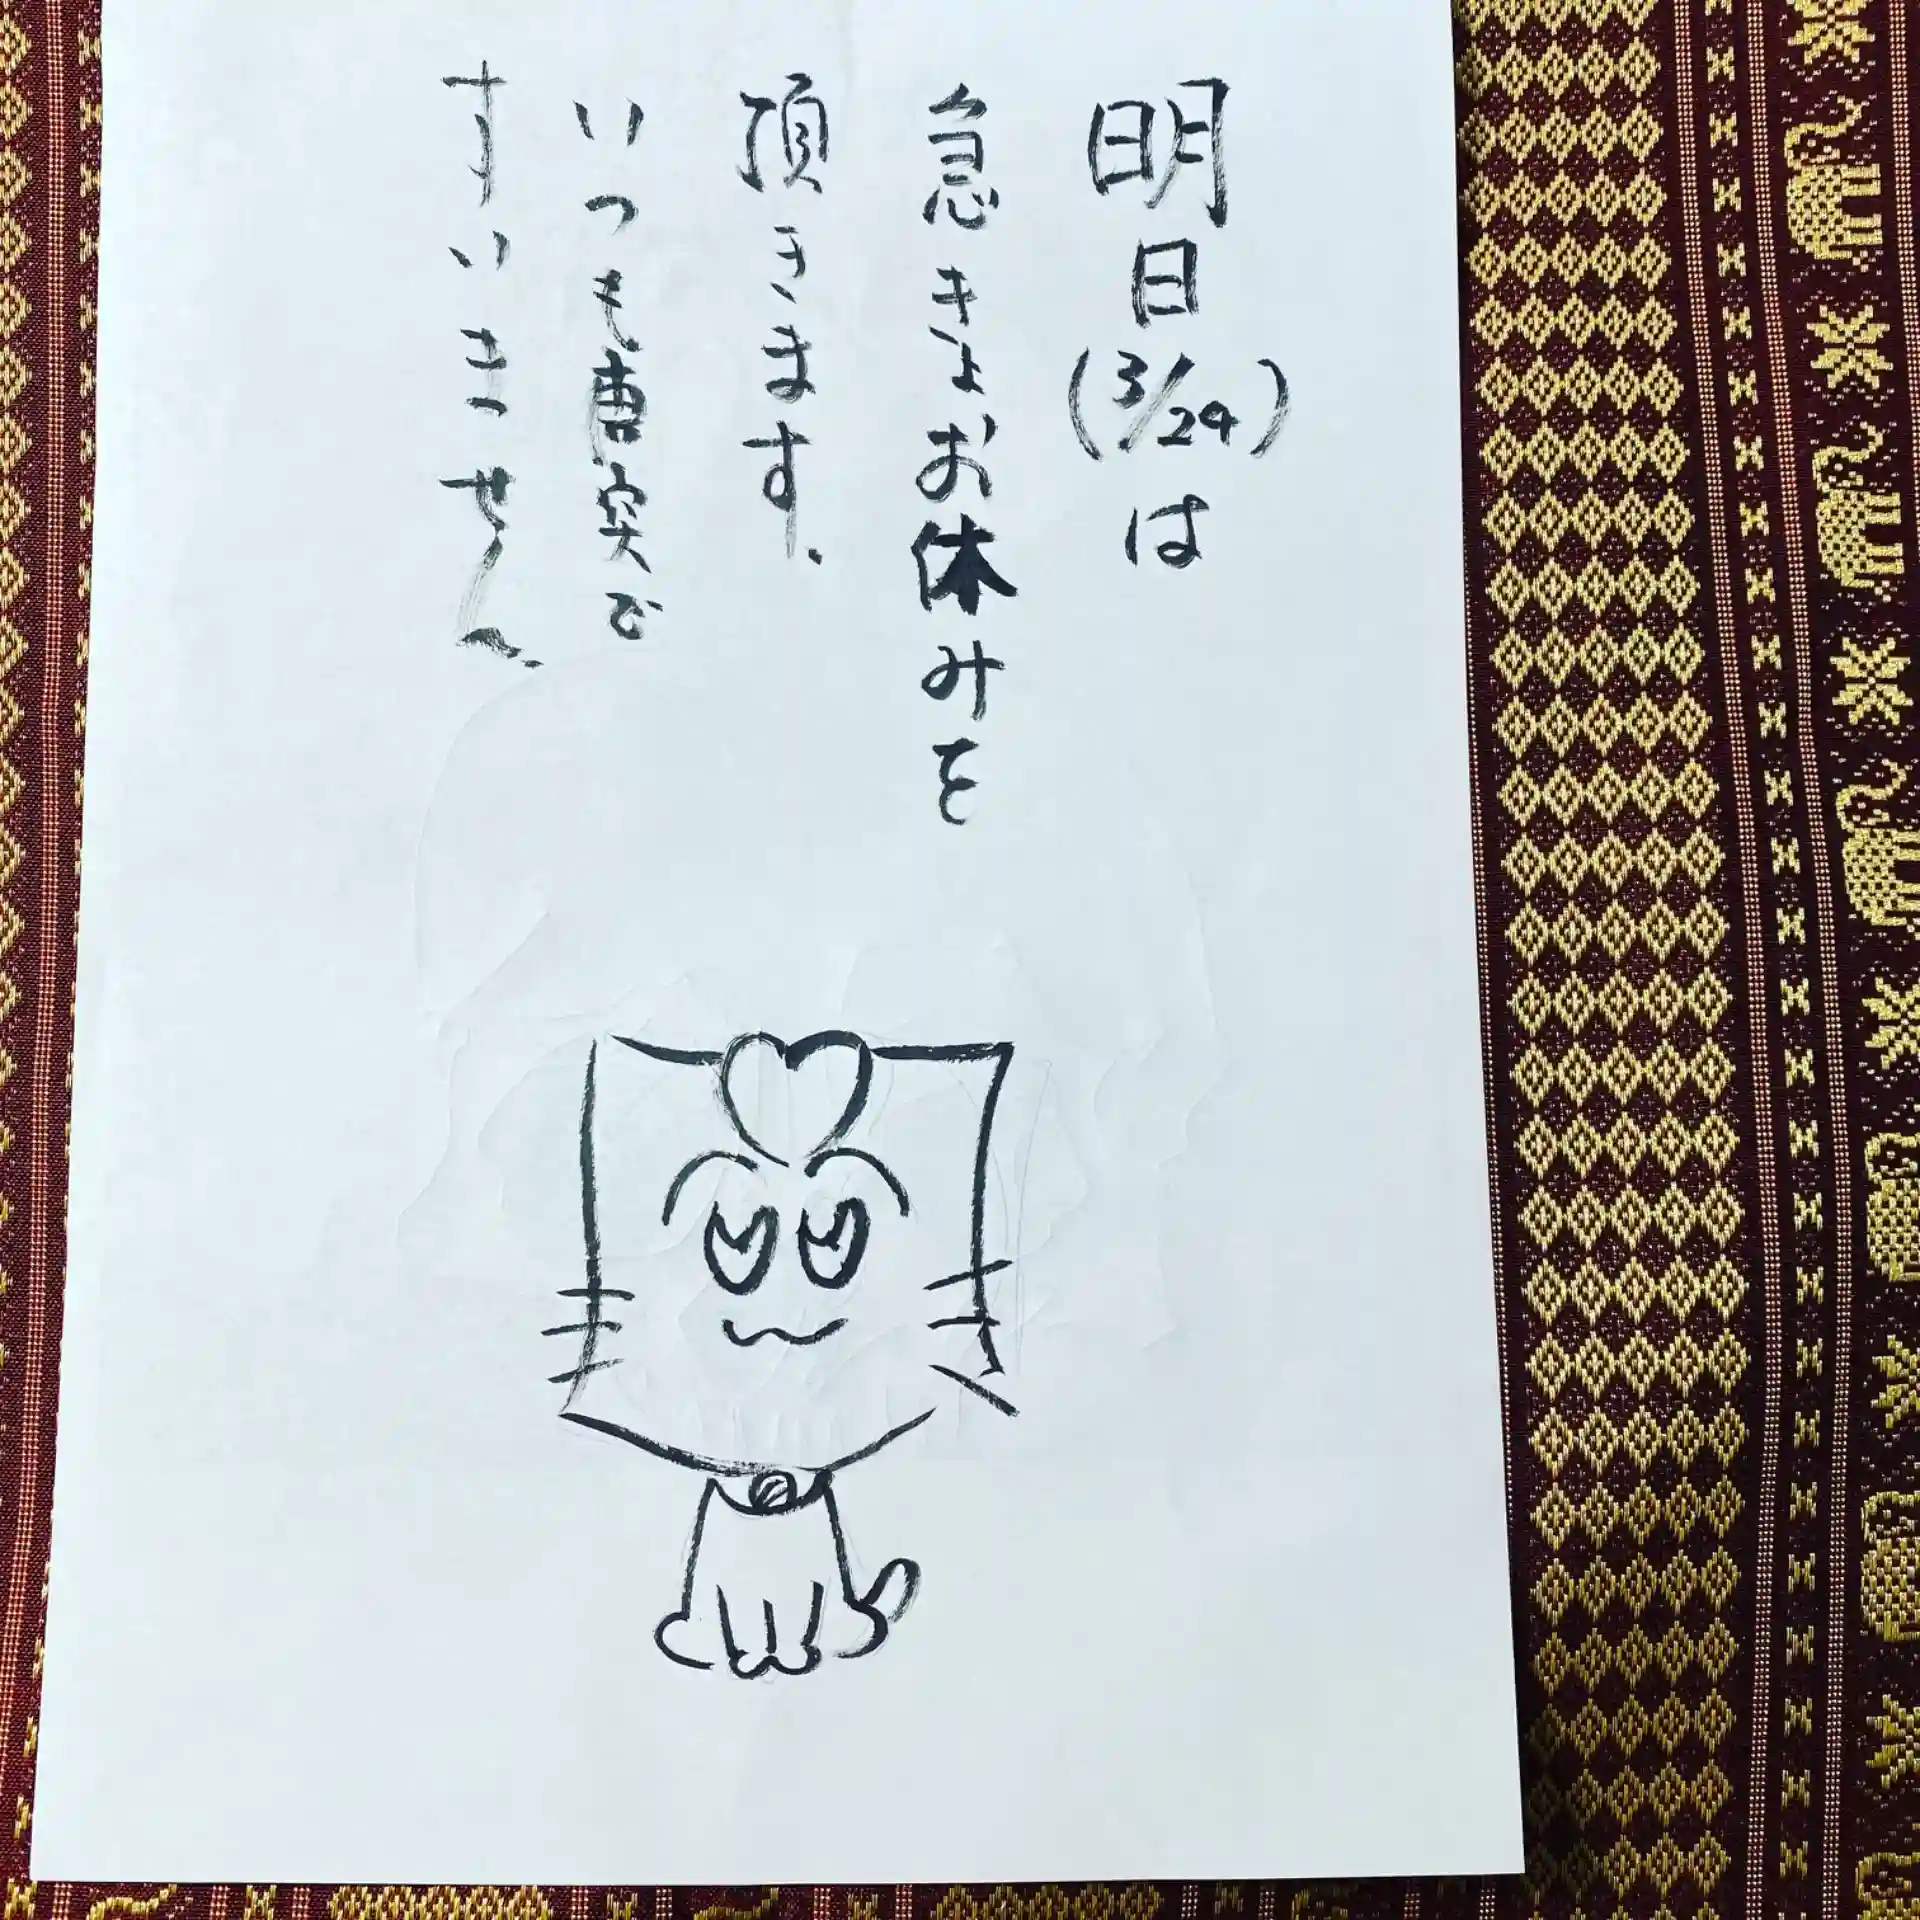 明日(3/29)は
急きょお休みを
頂きます、
いつも唐突で
すいません、